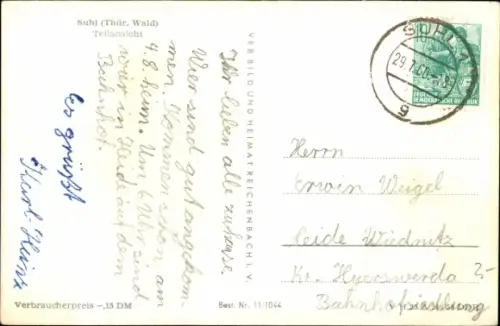 Suhl (Thür. Wald)
Teilansicht
Ihr lieben alle zuhause.
Wier sind gut angekom
men kommen schon am
4.8. heim. Um 6 Uhr sind
wier in Heide auf dem
Bahnhof.
Es grüßt
Karl-Heinz
Verbraucherpreis -,15 DM
VEB BILD UND HEIMAT REICHENBACH I. V.
Best. Nr. 11/1044
SUHL
29.7.60
g
DEMOKRATISCHE REPUBLIK
Herrn
Erwin Weigel
Heide Wiednitz
Kr. Hyerswerda
Bahnhofsiedlung
2-